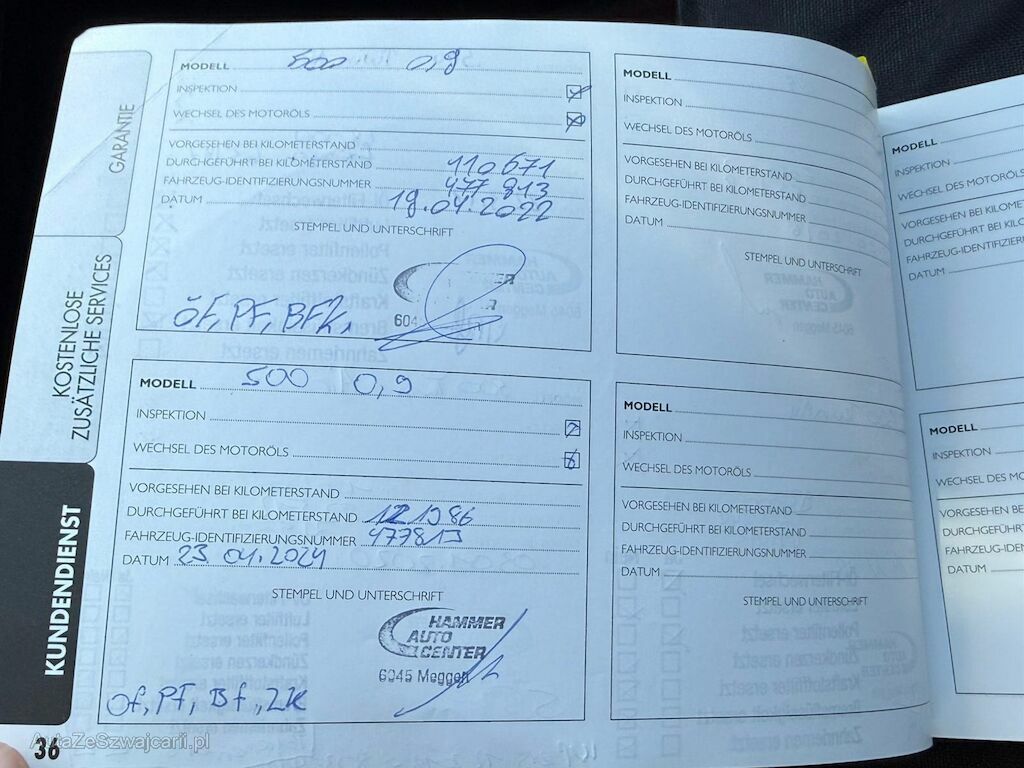 GARANTIE
KOSTENLOSE
ZUSÄTZLICHE SERVICES
KUNDENDIENST
MODELL 500 0,9
INSPEKTION
WECHSEL DES MOTORÖLS
VORGESEHEN BEI KILOMETERSTAND
DURCHGEFÜHRT BEI KILOMETERSTAND 110671
FAHRZEUG-IDENTIFIZIERUNGSNUMMER 477 813
DATUM 19.04.2022
STEMPEL UND UNTERSCHRIFT
604
ÖF, PF, BFK,
MODELL 500 0,9
INSPEKTION
WECHSEL DES MOTORÖLS
VORGESEHEN BEI KILOMETERSTAND
DURCHGEFÜHRT BEI KILOMETERSTAND
FAHRZEUG-IDENTIFIZIERUNGSNUMMER 477813
DATUM 23 04.2024
STEMPEL UND UNTERSCHRIFT
HAMMER
AUTO
CENTER
6045 Meggen
Öf, PF, Bf, ZK
36
AutaZeSzwajcarii.pl
MODELL
INSPEKTION
WECHSEL DES MOTORÖLS
VORGESEHEN BEI KILOMETERSTAND
DURCHGEFÜHRT BEI KILOMETERSTAND
FAHRZEUG-IDENTIFIZIERUNGSNUMMER
DATUM
STEMPEL UND UNTERSCHRIFT
MODELL
INSPEKTION
WECHSEL DES MOTORÖLS
VORGESEHEN BEI KILOMETERSTAND
DURCHGEFÜHRT BEI KILOMETERSTAND
FAHRZEUG-IDENTIFIZIERUNGSNUMMER
DATUM
STEMPEL UND UNTERSCHRIFT
MODELL
INSPEKTION
WECHSEL DES MOTORÖLS
VORGESEHEN BEI KILOME
DURCHGEFÜHRT BEI KILO
FAHRZEUG-IDENTIFIZIER
DATUM
MODELL
INSPEKTION
WECHSEL DES MO
VORGESEHEN BE
DURCHGEFÜHRT
FAHRZEUG-IDEN
DATUM